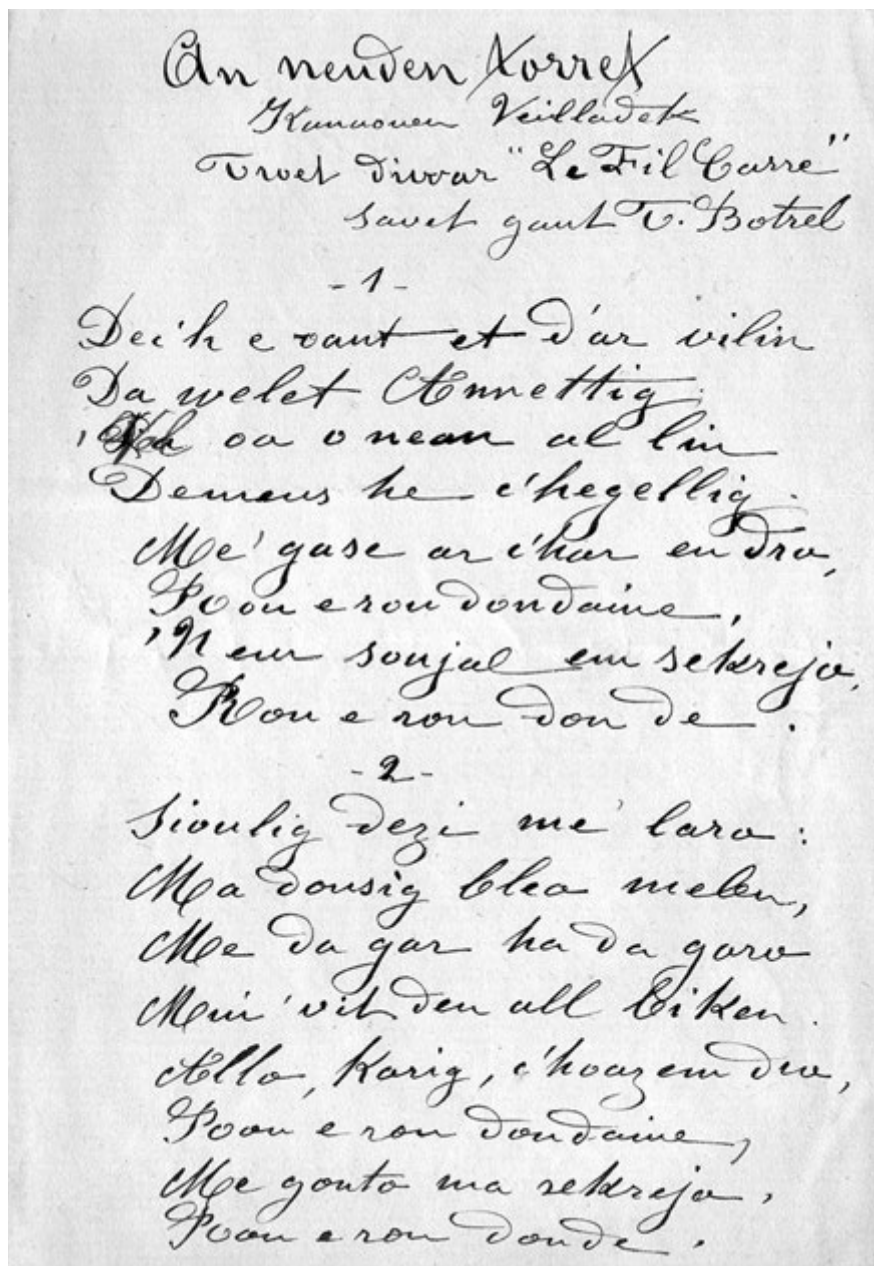 An neuden torret
Kanaouen Veilladek
Troet diwar "Le Fil Carre"
savet gant T. Botrel
- 1 -
Dec'h e oant et d'ar vilin
Da welet Annettig
oa o nean al lin
Demeus he c'hegellig.
Me' gase ar c'har en dro,
Roou e rou dondaine,
'N eur sonjal em sekrejo,
Rou e rou don de.
- 2 -
Sioulig dezi me laro :
Ma dousig bleo melen,
Me da gar ha da garo
Mui 'vit den all biken.
Allo, Karig, c'hoaz em dro,
Roou e rou dondaine,
Me gonto ma sekrejo,
Roou e rou don de.